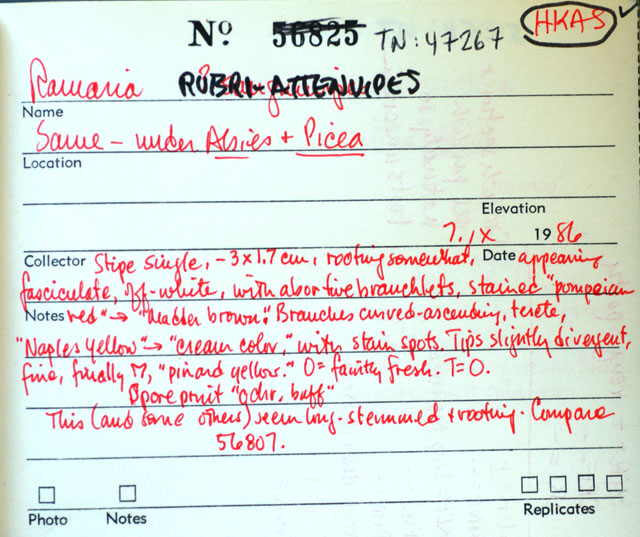 HKAS
No 56825 TN: 47267
Ramaria RUBRI-ATTENUIPES
Name
Same - under Abies + Picea
Location
Elevation
7. IX 1986
Collector Stipe single, -3x1.7 cm, rooting somewhat, Date appearing
fasciculate, off-white, with abortive branchlets, stained "pompeian
Notes red" → "madder brown." Branches curved-ascending, terete,
"Naples yellow" → "cream color," with stain spots. Tips slightly divergent,
fine, finally "pinard yellow." O = faintly fresh. T=O.
Spore print "ochr. buff"
This (and some others) seem long-stemmed + rooting. Compare
56807.
Photo Notes Replicates